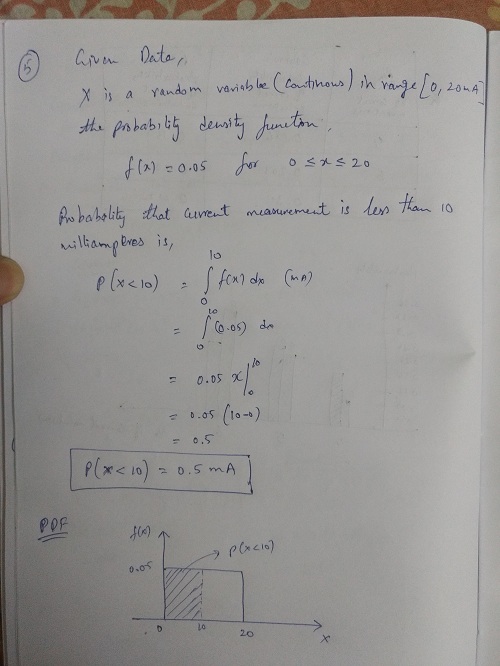 5 Given Data,
X is a random variable (continous) in range [0, 20mA]
the probability density function,
f(x) = 0.05 for 0 ≤ x ≤ 20
Probability that current measurement is less than 10
milliampres is,
P(x<10) = ∫₀¹⁰ f(x) dx (mA)
= ∫₀¹⁰ (0.05) dx
= 0.05 x|₀¹⁰
= 0.05 (10-0)
= 0.5
P(x<10) = 0.5 mA
PDF
f(x)
P(x<10)
0.05
0 10 20
x